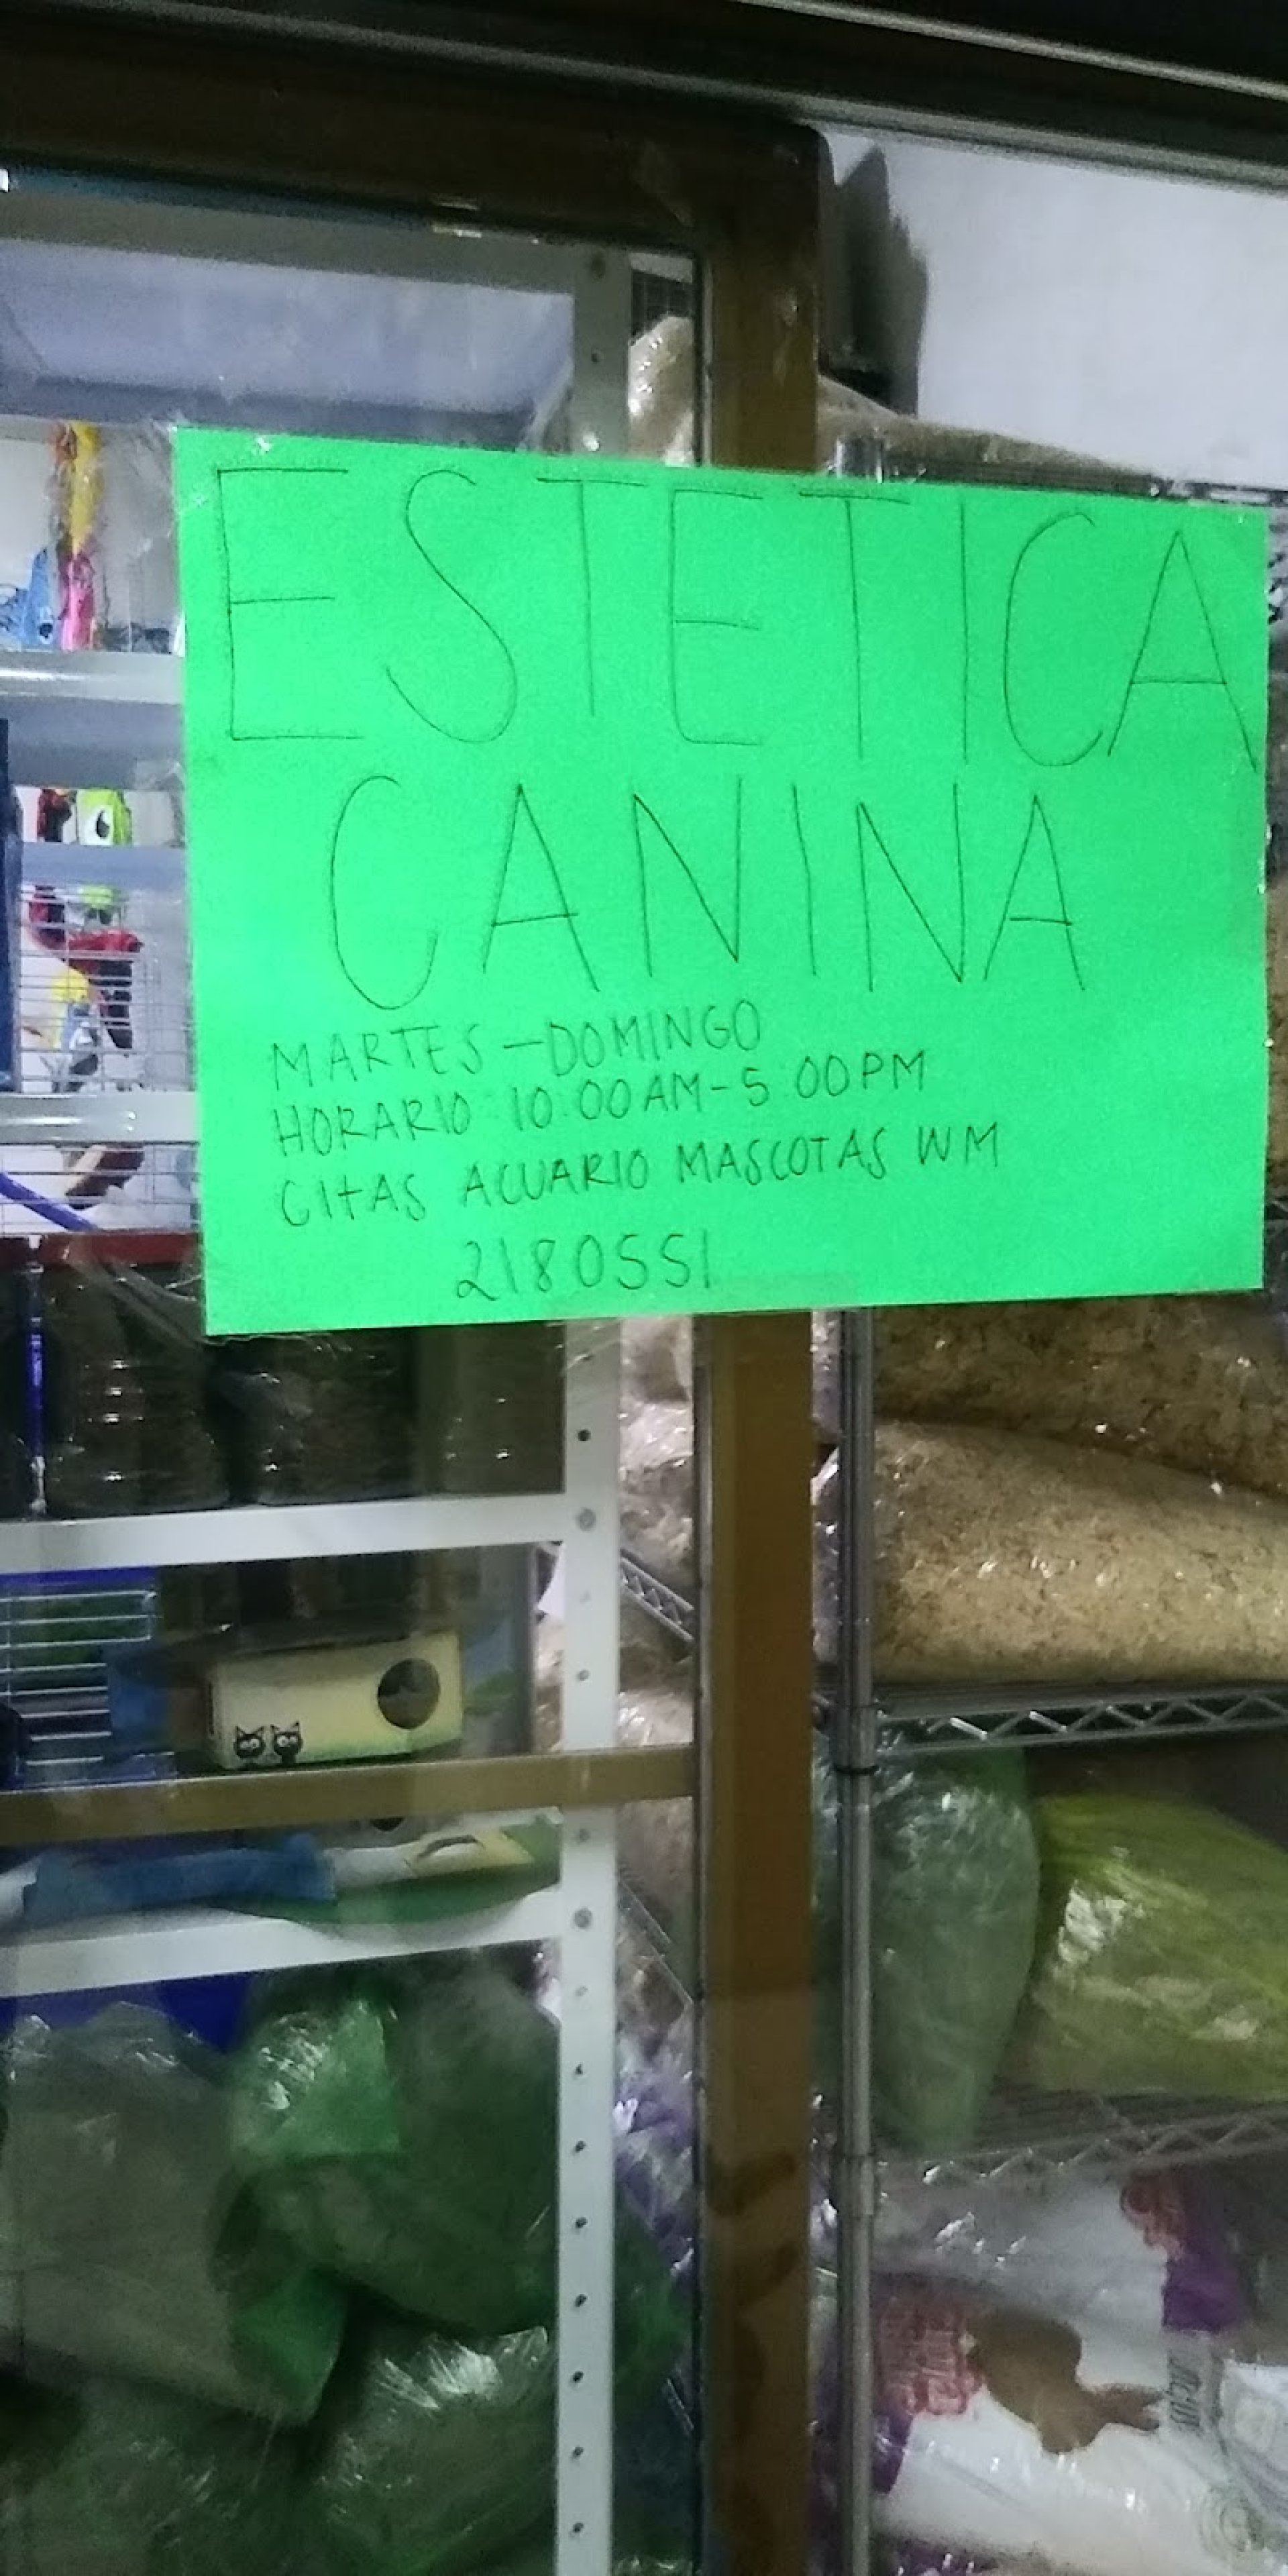 ESTETICA
CANINA
MARTES - DOMINGO
HORARIO: 10:00 AM - 5:00 PM
CITAS ACUARIO MASCOTAS WM
2180551